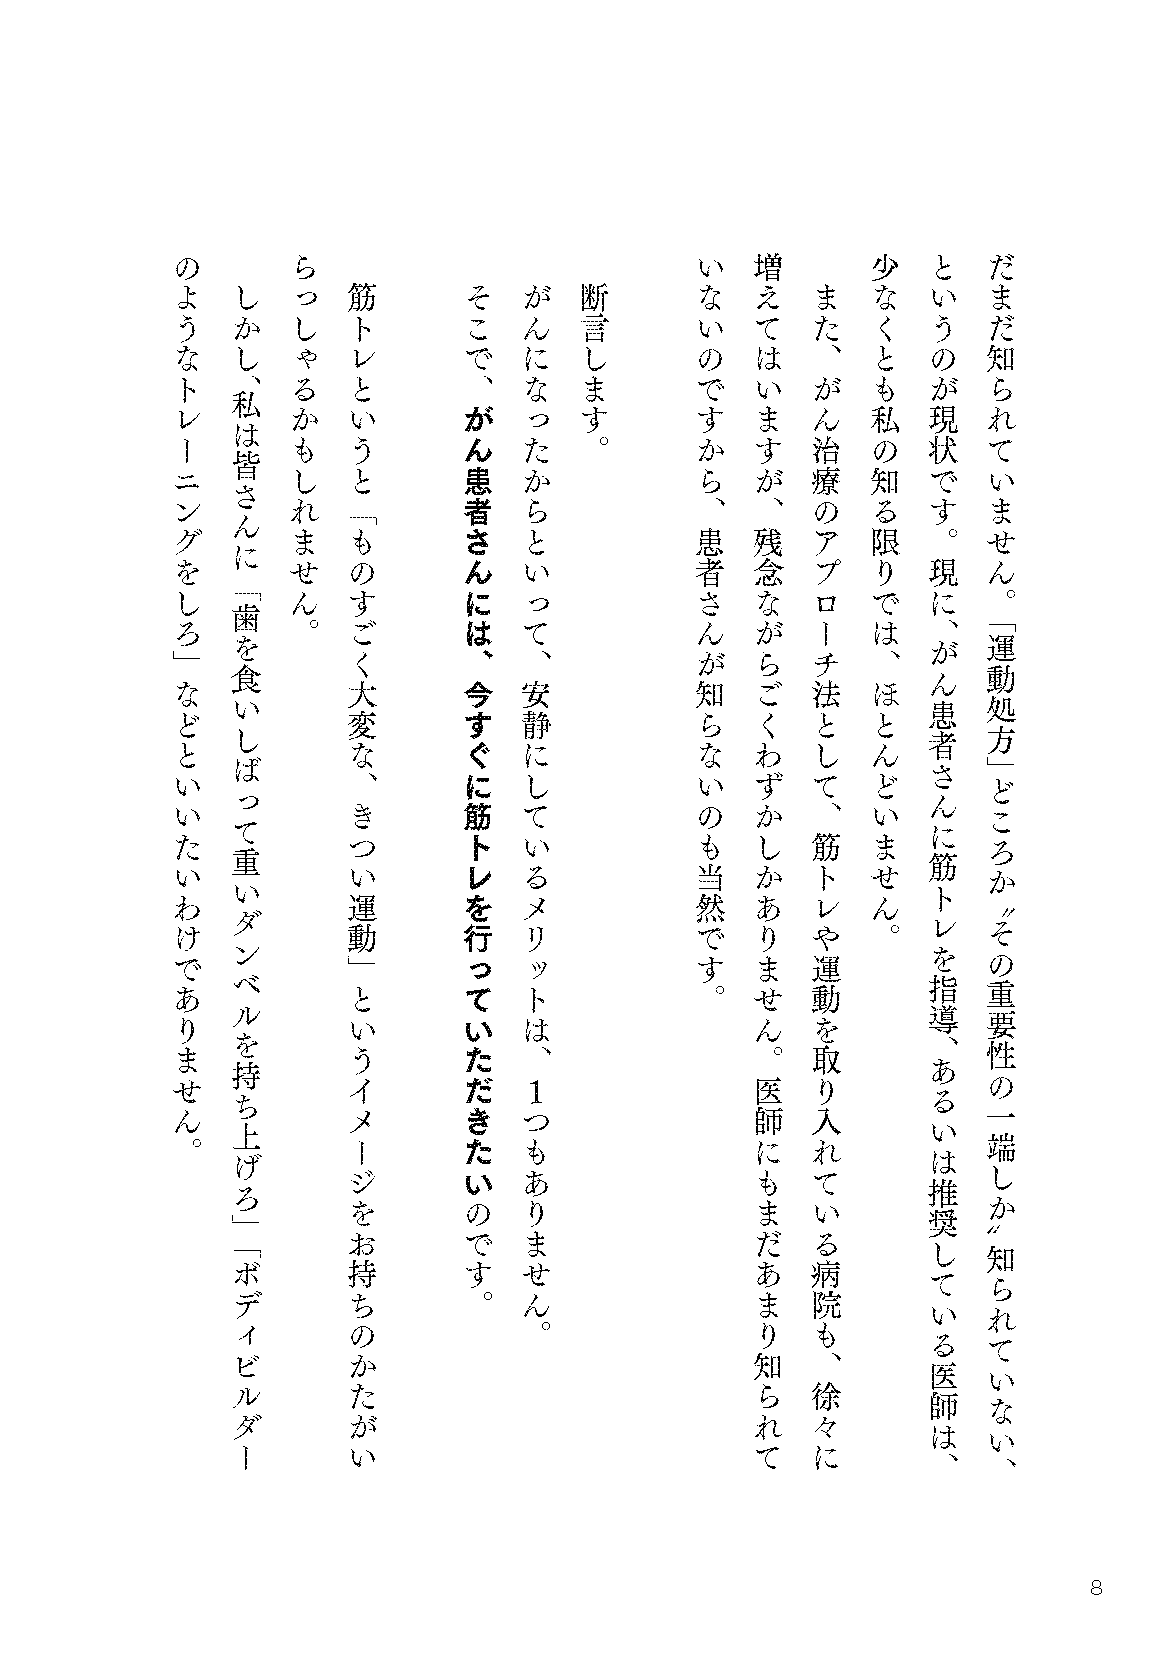 だまだ知られていません。「運動処方」どころか〝その重要性の一端しか〟知られていない、
というのが現状です。現に、がん患者さんに筋トレを指導、あるいは推奨している医師は、
少なくとも私の知る限りでは、ほとんどいません。
また、がん治療のアプローチ法として、筋トレや運動を取り入れている病院も、徐々に
増えてはいますが、残念ながらごくわずかしかありません。医師にもまだあまり知られて
いないのですから、患者さんが知らないのも当然です。
断言します。
がんになったからといって、安静にしているメリットは、1つもありません。
そこで、がん患者さんには、今すぐに筋トレを行っていただきたいのです。
筋トレというと「ものすごく大変な、きつい運動」というイメージをお持ちのかたがい
らっしゃるかもしれません。
しかし、私は皆さんに「歯を食いしばって重いダンベルを持ち上げろ」「ボディビルダー
のようなトレーニングをしろ」などといいたいわけでありません。
8